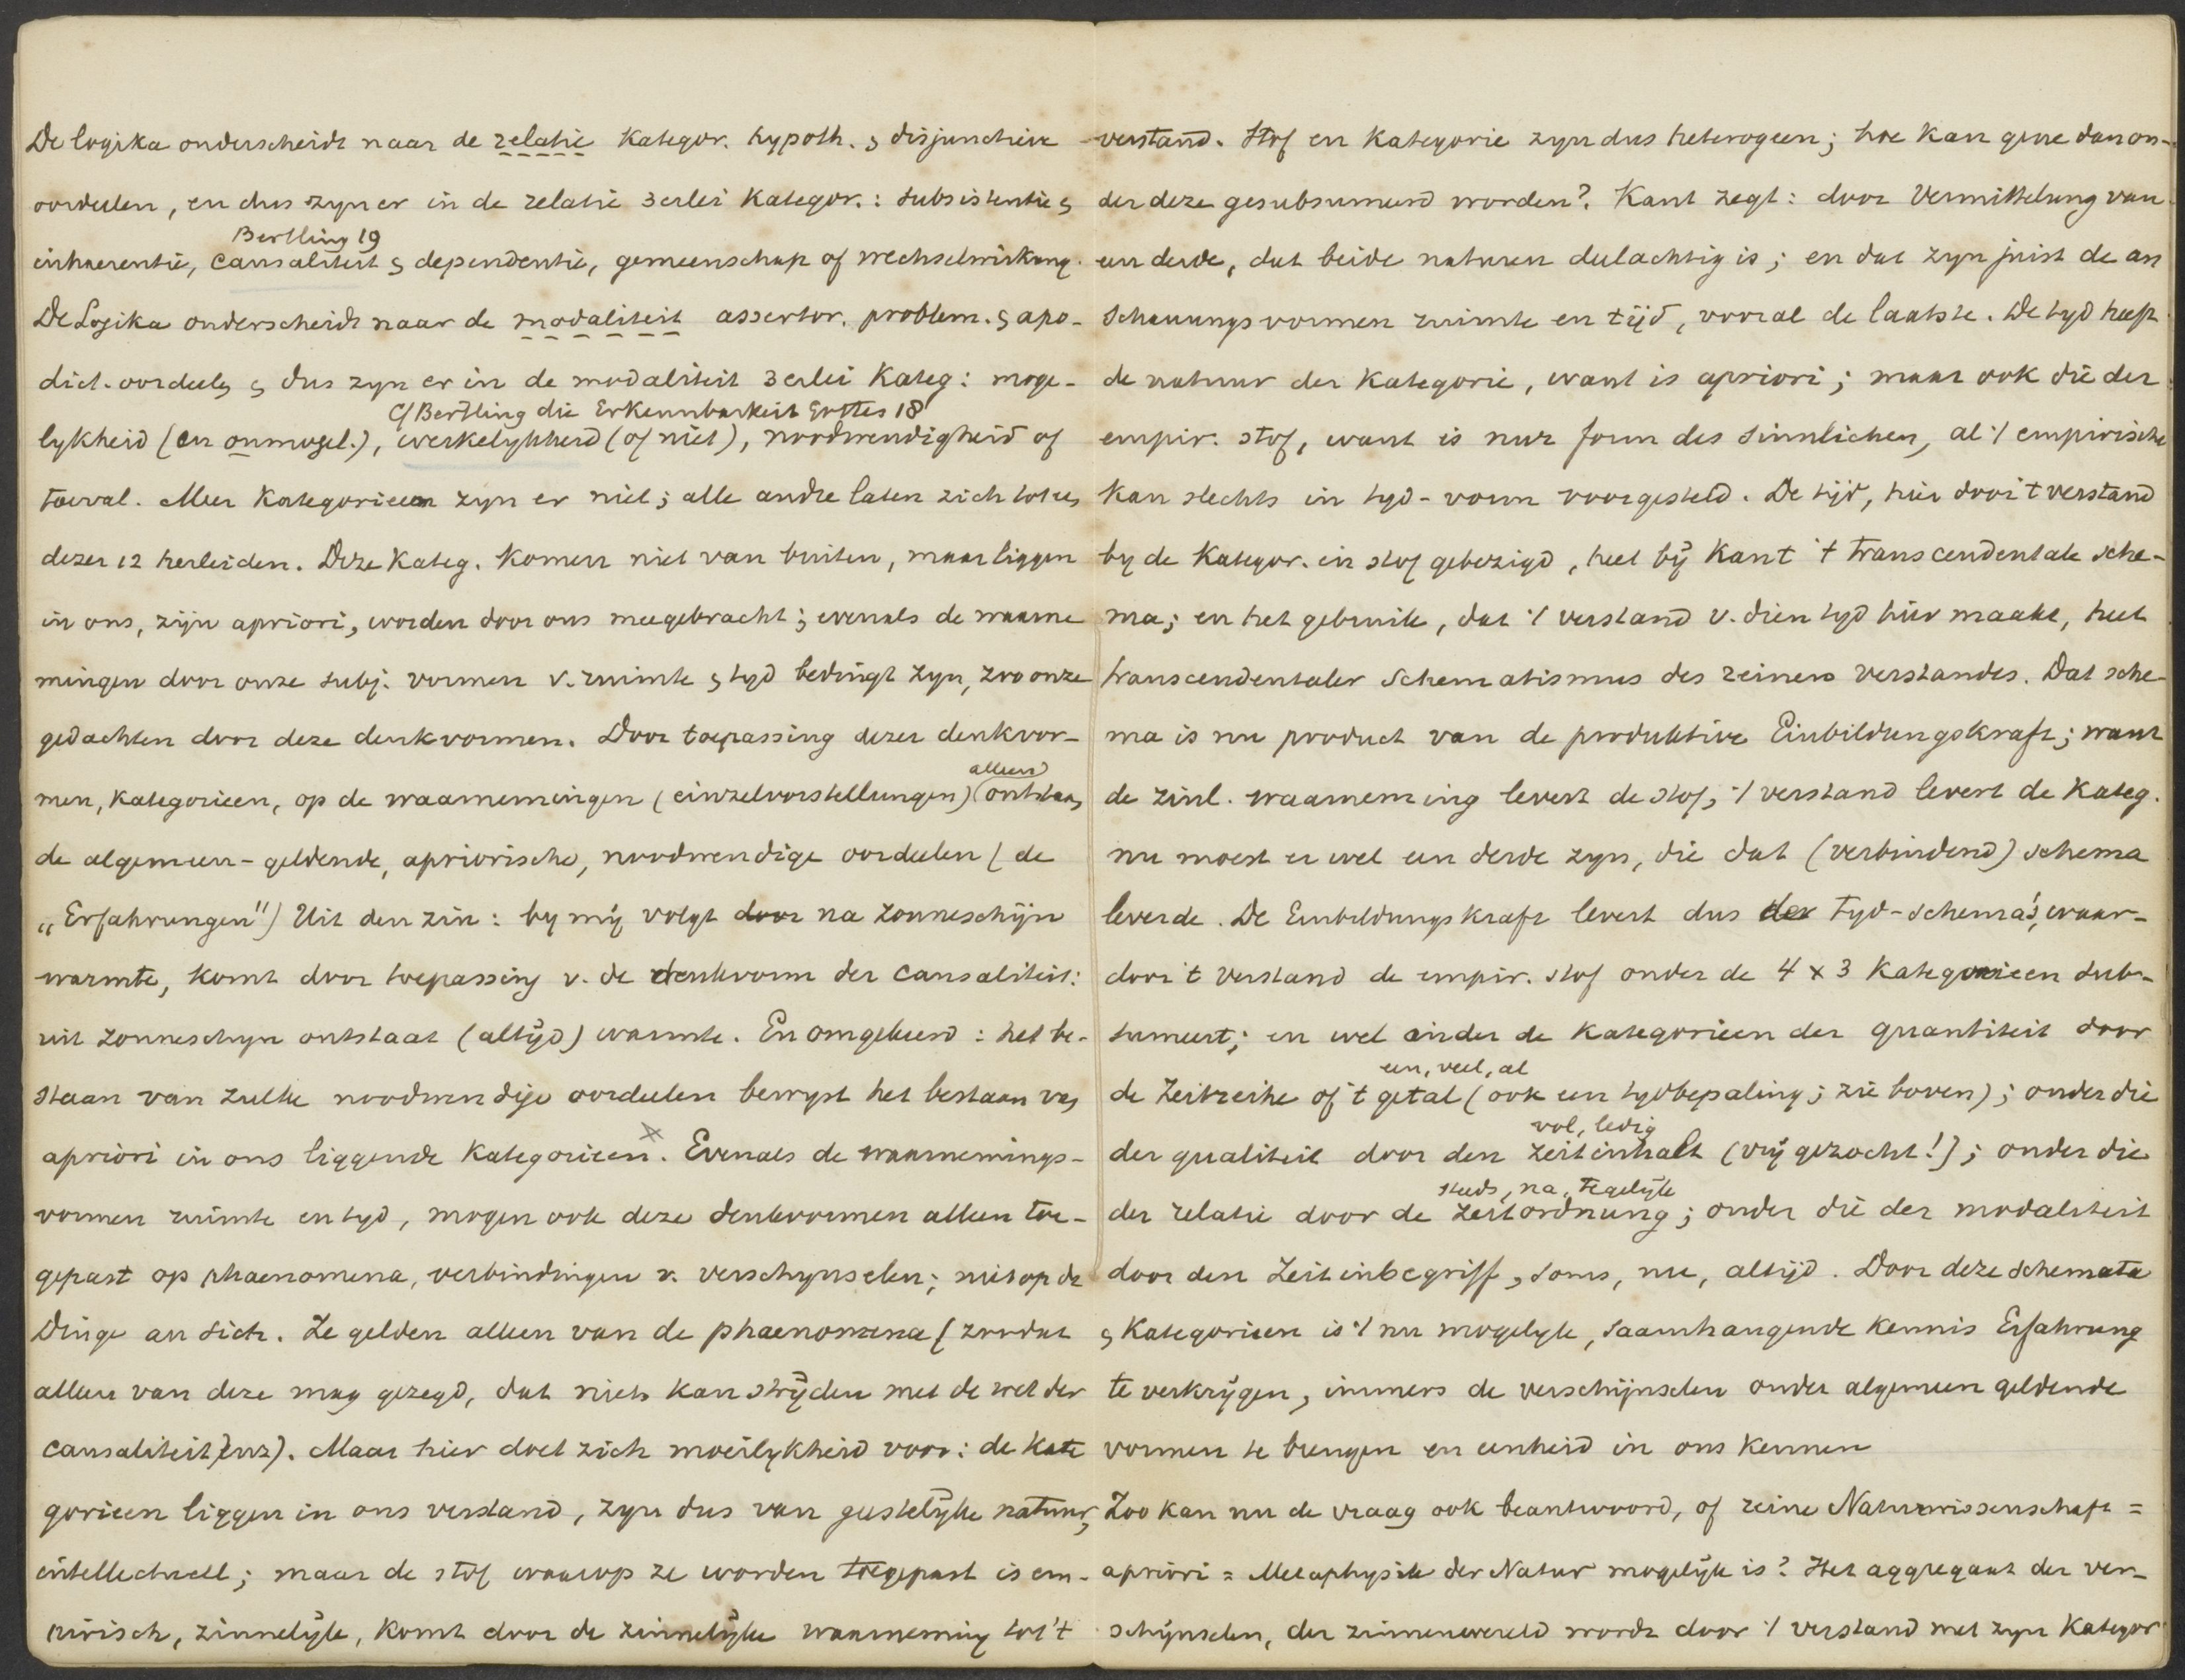 De logika onderscheidt naar de relatie kategor. hypoth. & disjunctieve
oordeelen, en dus zyn er in de relatie 3erlei kategor.: subsistentie &
Bertling 19
inhaerentie, causaliteit & dependentie, gemeenschap of wechselwirkung.
De Logika onderscheidt naar de modaliteit assertor. problem. & apo-
dict. oordeelen & dus zyn er in de modaliteit 3erlei kateg: moge-
cf Bertling die Erkennbarkeit Gottes 18
lykheid (en onmogel.), werkelykheid (of niet), noodwendigheid of
toeval. Meer kategorieen zyn er niet; alle andre laten zich tot een
dezer 12 herleiden. Deze kateg. komen niet van buiten, maar liggen
in ons, zijn apriori, worden door ons meegebracht; evenals de waarne
mingen door onze subj. vormen v. ruimte & tyd bedingt zyn, zoo onze
gedachten door deze denkvormen. Door toepassing dezer denkvor-
alleen
men, kategorieen, op de waarnemingen (einzelvorstellungen) ontstaan
de algemeen-geldende, apriorische, noodwendige oordeelen (de
„Erfahrungen") Uit den zin: by mij volgt door na zonneschijn
warmte, komt door toepassing v. de denkvorm der causaliteit:
uit zonneschyn ontstaat (altijd) warmte. En omgekeerd: het be-
staan van zulke noodwendige oordeelen bewyst het bestaan van
apriori in ons liggende kategorieen. Evenals de waarnemings-
vormen ruimte en tyd, mogen ook deze denkvormen alleen toe-
gepast op phaenomena, verbindingen v. verschynselen; niet op de
Dinge an sich. Ze gelden alleen van de phaenomena (zoodat
alleen van deze mag gezegd, dat niets kan strijden met de wet der
causaliteit enz). Maar hier doet zich moeilykheid voor: de kate
gorieen liggen in ons verstand, zyn dus van geestelijke natuur,
intellectuell; maar de stof waarop ze worden toegepast is em-
pirisch, zinnelijk, komt door de zinnelijke waarneming tot 't
verstand. Stof en kategorie zyn dus heterogeen; hoe kan gene dan on-
der deze gesubsumeerd worden? Kant zegt: door Vermittelung van
een derde, dat beide naturen deelachtig is; en dat zyn juist de an
schauungsvormen ruimte en tijd, vooral de laatste. De tyd heeft
de natuur der kategorie, want is apriori; maar ook die der
empir. stof, want is nur form des sinnlichen, al 't empirische
kan slechts in tyd-vorm voorgesteld. De tijd, hier door 't verstand
by de kategor. en stof gebezigd, heet bij Kant 't transcendentale sche-
ma; en het gebruik, dat 't verstand v. dien tyd hier maakt, heet
transcendentaler Schematismus des reinen verstandes. Dat sche-
ma is nu product van de produktive Einbildungskraft; want
de zinl. waarneming levert de stof, 't verstand levert de kateg.
nu moest er wel een derde zyn, die dat (verbindend) schema
leverde. De Einbildungskraft levert dus der tyd-schema's, waar-
door 't verstand de empir. stof onder de 4 x 3 kategorieen sub-
sumeert; en wel onder de kategorieen der quantiteit door
een, veel, al
de Zeitreihe of 't getal (ook een tydbepaling; zie boven); onder die
vol, ledig
der qualiteit door den Zeitinhalt (vrij gezocht!); onder die
steeds, na, tegelijk
der relatie door de Zeitordnung; onder die der modaliteit
door den Zeitinbegriff, soms, nu, altijd. Door deze schemata
& kategorieen is 't nu mogelyk, saamhangende kennis Erfahrung
te verkrijgen, immers de verschijnselen onder algemeen geldende
vormen te brengen en eenheid in ons kennen
Zoo kan nu de vraag ook beantwoord, of reine Naturwissenschaft =
apriori = Metaphysik der Natur mogelijk is? Het aggregaat der ver-
schijnselen, der zinnenwereld wordt door 't verstand met zyn kategor